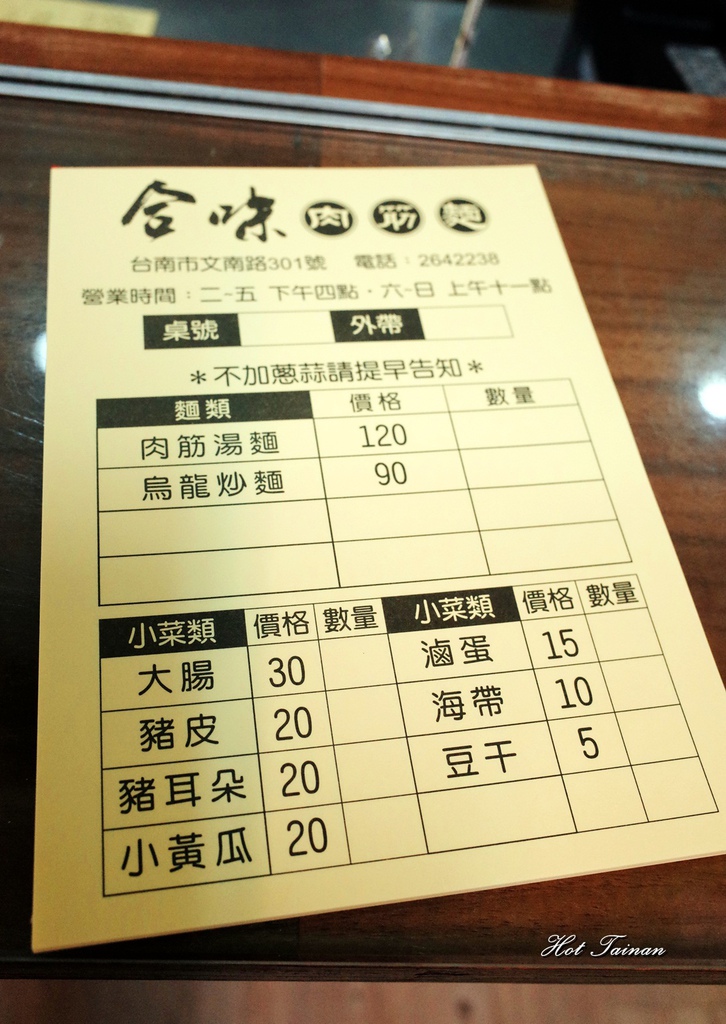 合味肉筋麵
台南市文南路301號 電話：2642238
營業時間：二~五 下午四點・六~日 上午十一點
桌號 外帶
＊不加蔥蒜請提早告知＊
麵類 價格 數量
肉筋湯麵 120
烏龍炒麵 90
小菜類 價格 數量 小菜類 價格 數量
大腸 30 滷蛋 15
豬皮 20 海帶 10
豬耳朵 20 豆干 5
小黃瓜 20
Hot Tainan